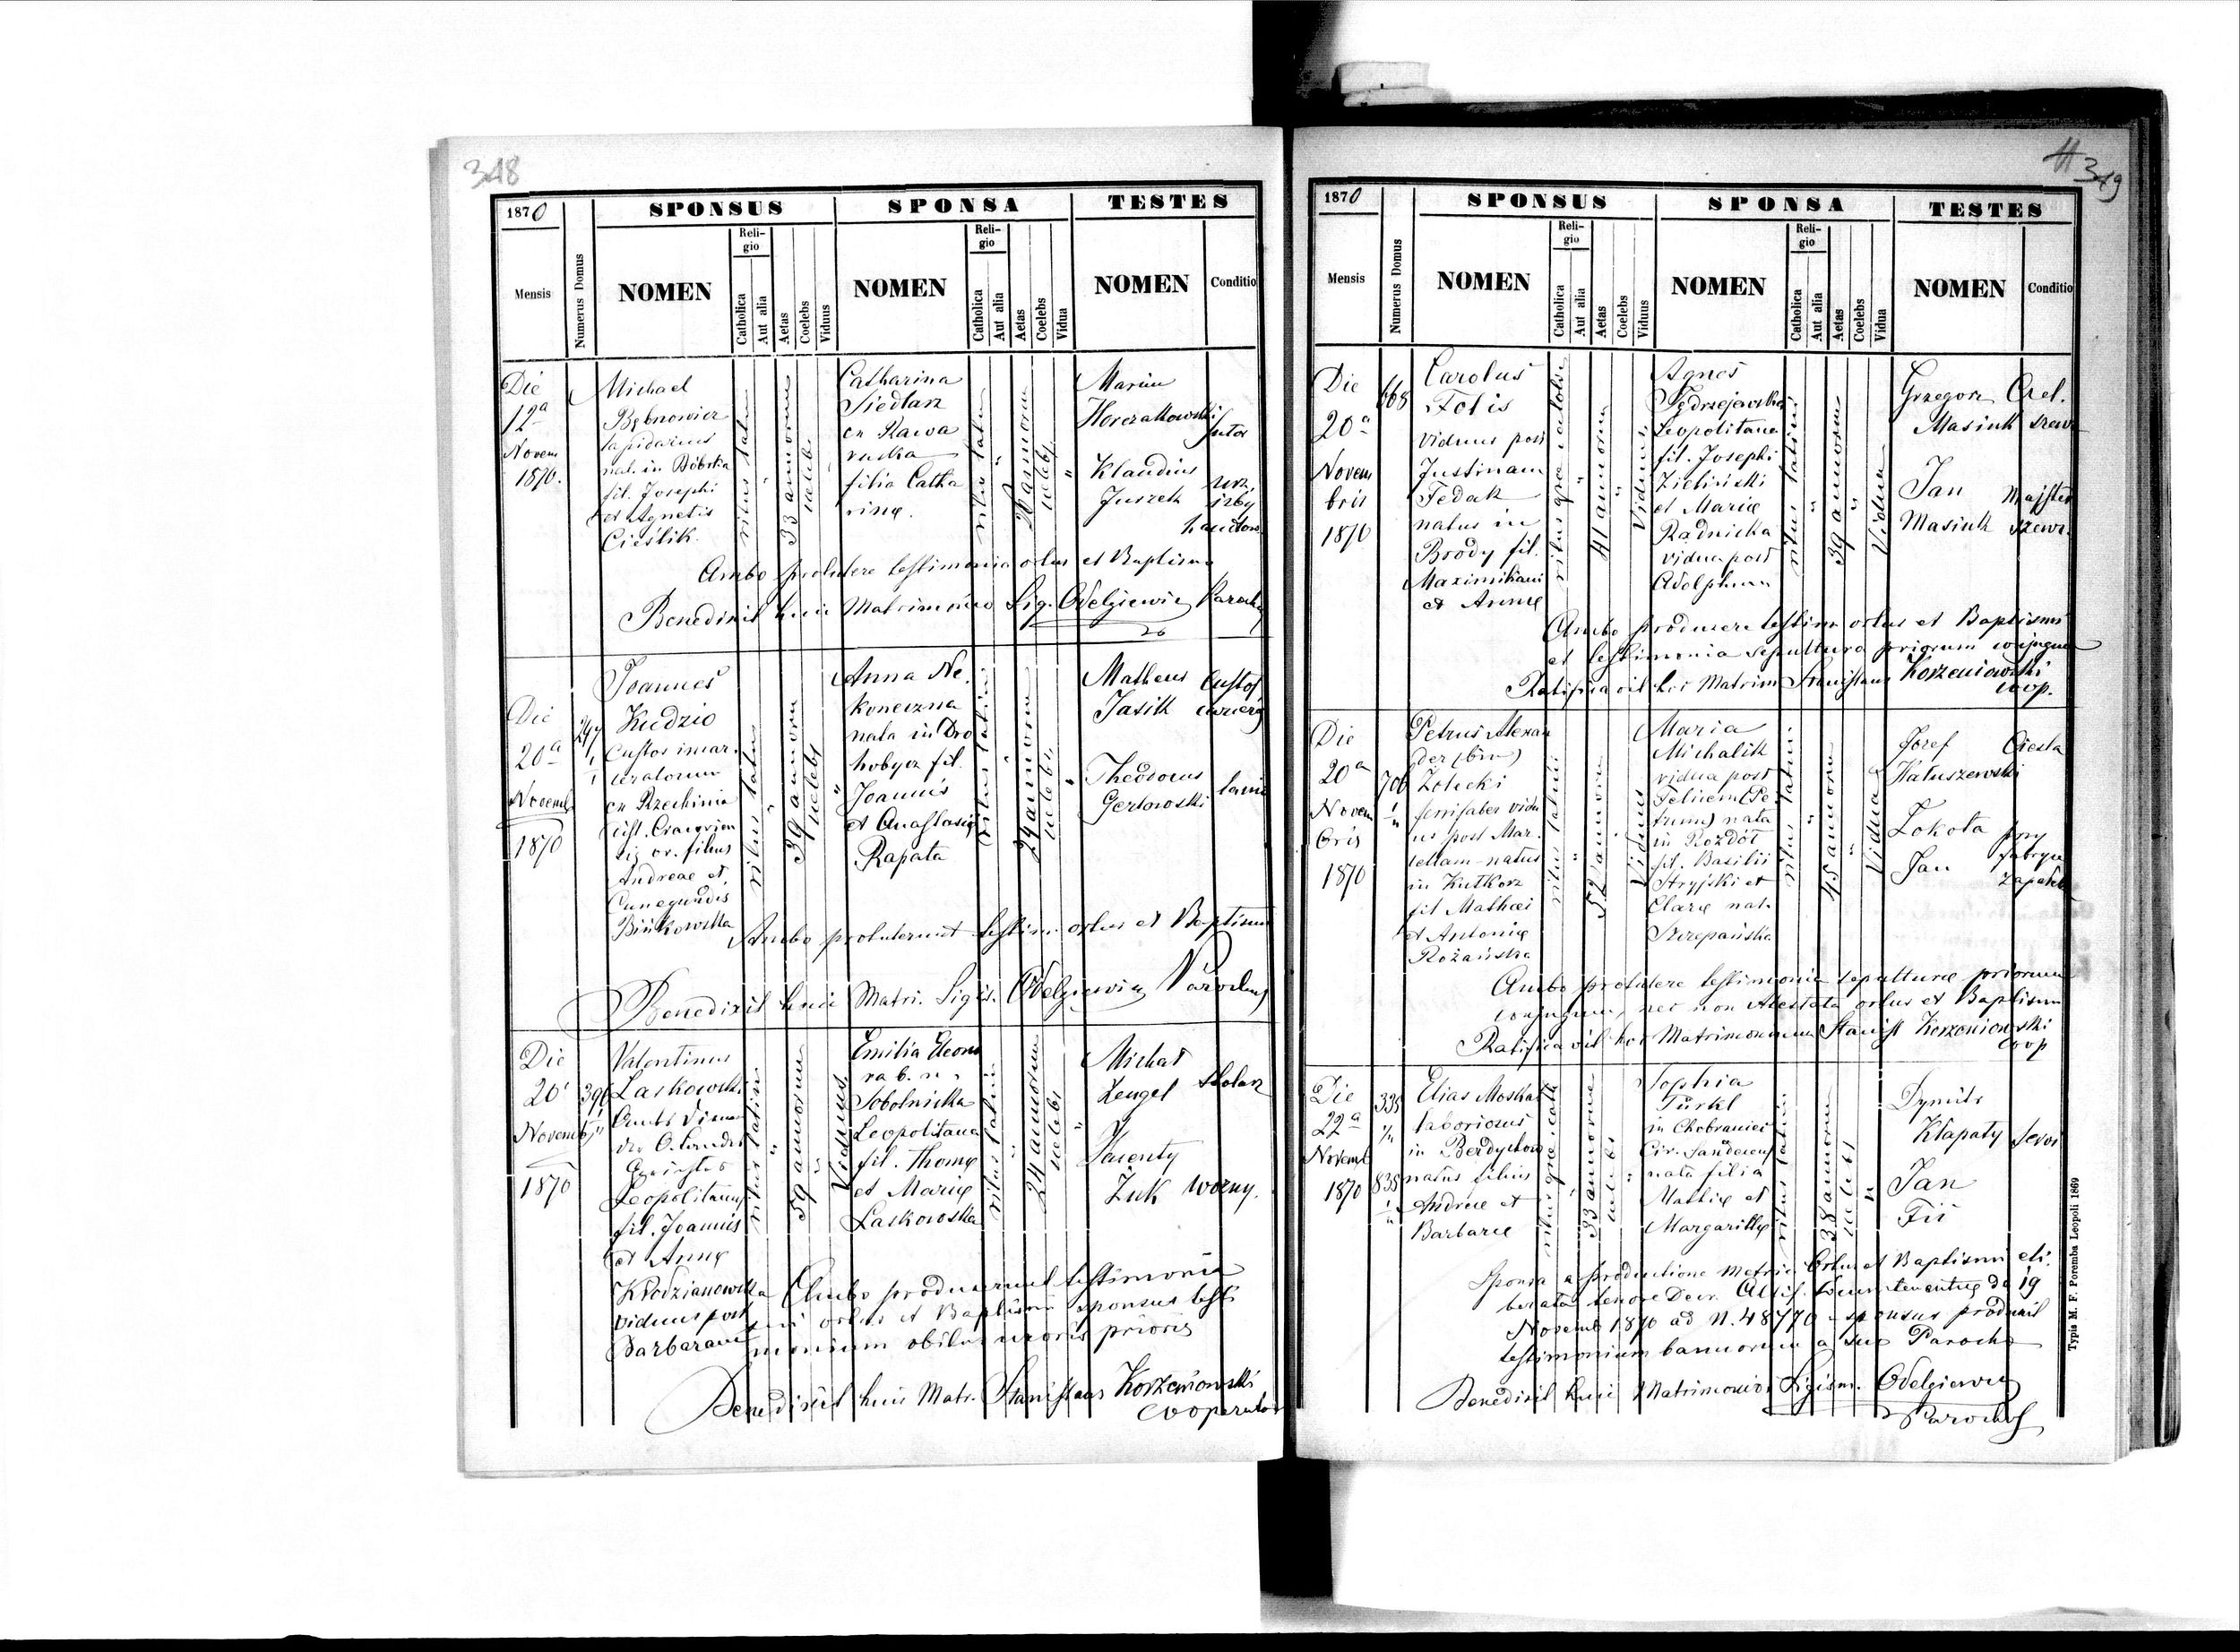 348
1870
SPONSUS
SPONSA
TESTES
Mensis
Numerus Domus
NOMEN
Religio
Catholica
Aut alia
Aetas
Coelebs
Viduus
NOMEN
Religio
Catholica
Aut alia
Aetas
Coelebs
Vidua
NOMEN
Conditio
Die
12a
Novem
1870.
Michael
Bębnowicz
lapidarius
nat. in Bóbrka
fil. Josephi
et Agnetis
Cieślik.
33 annorum
caelebs
Catharina
Siedlarz
ex Rawa
ruska
filia Catha
rinę.
ritus latini
26 annorum
caelebs
Horczakowski
sutor
Klaudius
Juszek
Ambo protulere testimonia ortus et Baptismi
Benedixit huic Matrimonio Sig. Odelgiewicz Parochus
Die
20a
Novemb
1870
Joannes
Kudzio
Custos incar
ceratorum
ex Rzechinia
filius
Andreae et
Cunegundis
Bińkowska
ritus latini
39 annorum
caelebs
Anna Ne
koneczna
nata in Dro
hobycz fil.
Joannis
et Anastasię
Rapata
ritus latini
29 annorum
caelebs
Matheus
Jasik
Custos
Theodorus
Gerlowski
Ambo protulerunt testim. ortus et Baptismi
Benedixit huic Matri. Sigis. Odelgiewicz Parochus
Die
20a
Novemb
1870
396
Valentinus
Laskowski
Leopolitanus
fil. Joannis
et Annę
Kłodzianowska
viduus post
Barbaram
ritus latini
59 annorum
Viduus
Emilia Eleono
ra b. n.
Sobolnicka
Leopolitana
fil. Thomę
et Marię
Laskowska
ritus latini
24 annorum
caelebs
Michał
Zengel
stolarz
Żuk
Woźny.
Ambo produxerunt testimonia
ortus et Baptismi sponsus testi
monium obitus uxoris prioris
Benedixit huic Matr. Stanislaus Korzeniowski
Cooperator
349
1870
SPONSUS
SPONSA
TESTES
Mensis
Numerus Domus
NOMEN
Religio
Catholica
Aut alia
Aetas
Coelebs
Viduus
NOMEN
Religio
Catholica
Aut alia
Aetas
Coelebs
Vidua
NOMEN
Conditio
Die
20a
Novem
bris
1870
668
Carolus
Folis
viduus post
Justinam
Fedak
natus in
Brody fil.
Maximiliani
et Annę
41 annorum
Viduus
Agnes
Jędrzejewska
Leopolitana
fil. Josephi
Zieliński
et Marię
Radnicka
vidua post
Adolphum
ritus latini
39 annorum
Vidua
Grzegorz
Masiuk
Czel.
szew
Jan
Masiuk
Majster
szewc.
Ambo produxere testim ortus et Baptismi
et testimonia sepulturę priorum conjugum
Ratificavit hoc Matrim Stanislaus Korzeniowski
coop.
Die
20a
Novem
bris
1870
706
Petrus Alexan
der (bin)
Żołecki
ferrifaber vidu
us post Mar
cellam natus
in Kutkorz
fil Mathaei
et Antonię
Rożańska
ritus latini
52 annorum
Viduus
Maria
Michalik
vidua post
Felicem (Pe
trum) nata
in Rozdół
fil. Basilii
Stryjski et
Clarę nat.
Szczepańska
ritus latini
45 annorum
Vidua
Józef
Kałuszewski
Ciesla
Zokota
Jan
przy
fabryce
zapałek
Ambo protulere testimonia sepulturę priorum
conjugum, nec non Atestata ortus et Baptismi
Ratificavit hoc Matrimonium Stanisl Korzeniowski
coop
Die
22a
Novemb
1870
335
835
Elias Moskal
laboriosus
in Berdychów
natus filius
Andreę et
Barbarę
33 annorum
caelebs
Sophia
Türkl
in Chobranice
Cir. Sandecens
nata filia
Mathię et
Margarithę
ritus latini
38 annorum
caelebs
Dymitr
Kłapaty
Jan
Fii
Sponsa a productione metricę Ortus et Baptismi eli
berata tenore Decr. Locumtenentię de 19
Novemb 1870 ad N. 48770 sponsus produxit
testimonium bannorum a suo Parocho
Benedixit huic Matrimonio Sigism. Odelgiewicz
Parochus
Typis M. F. Poremba Leopoli 1869